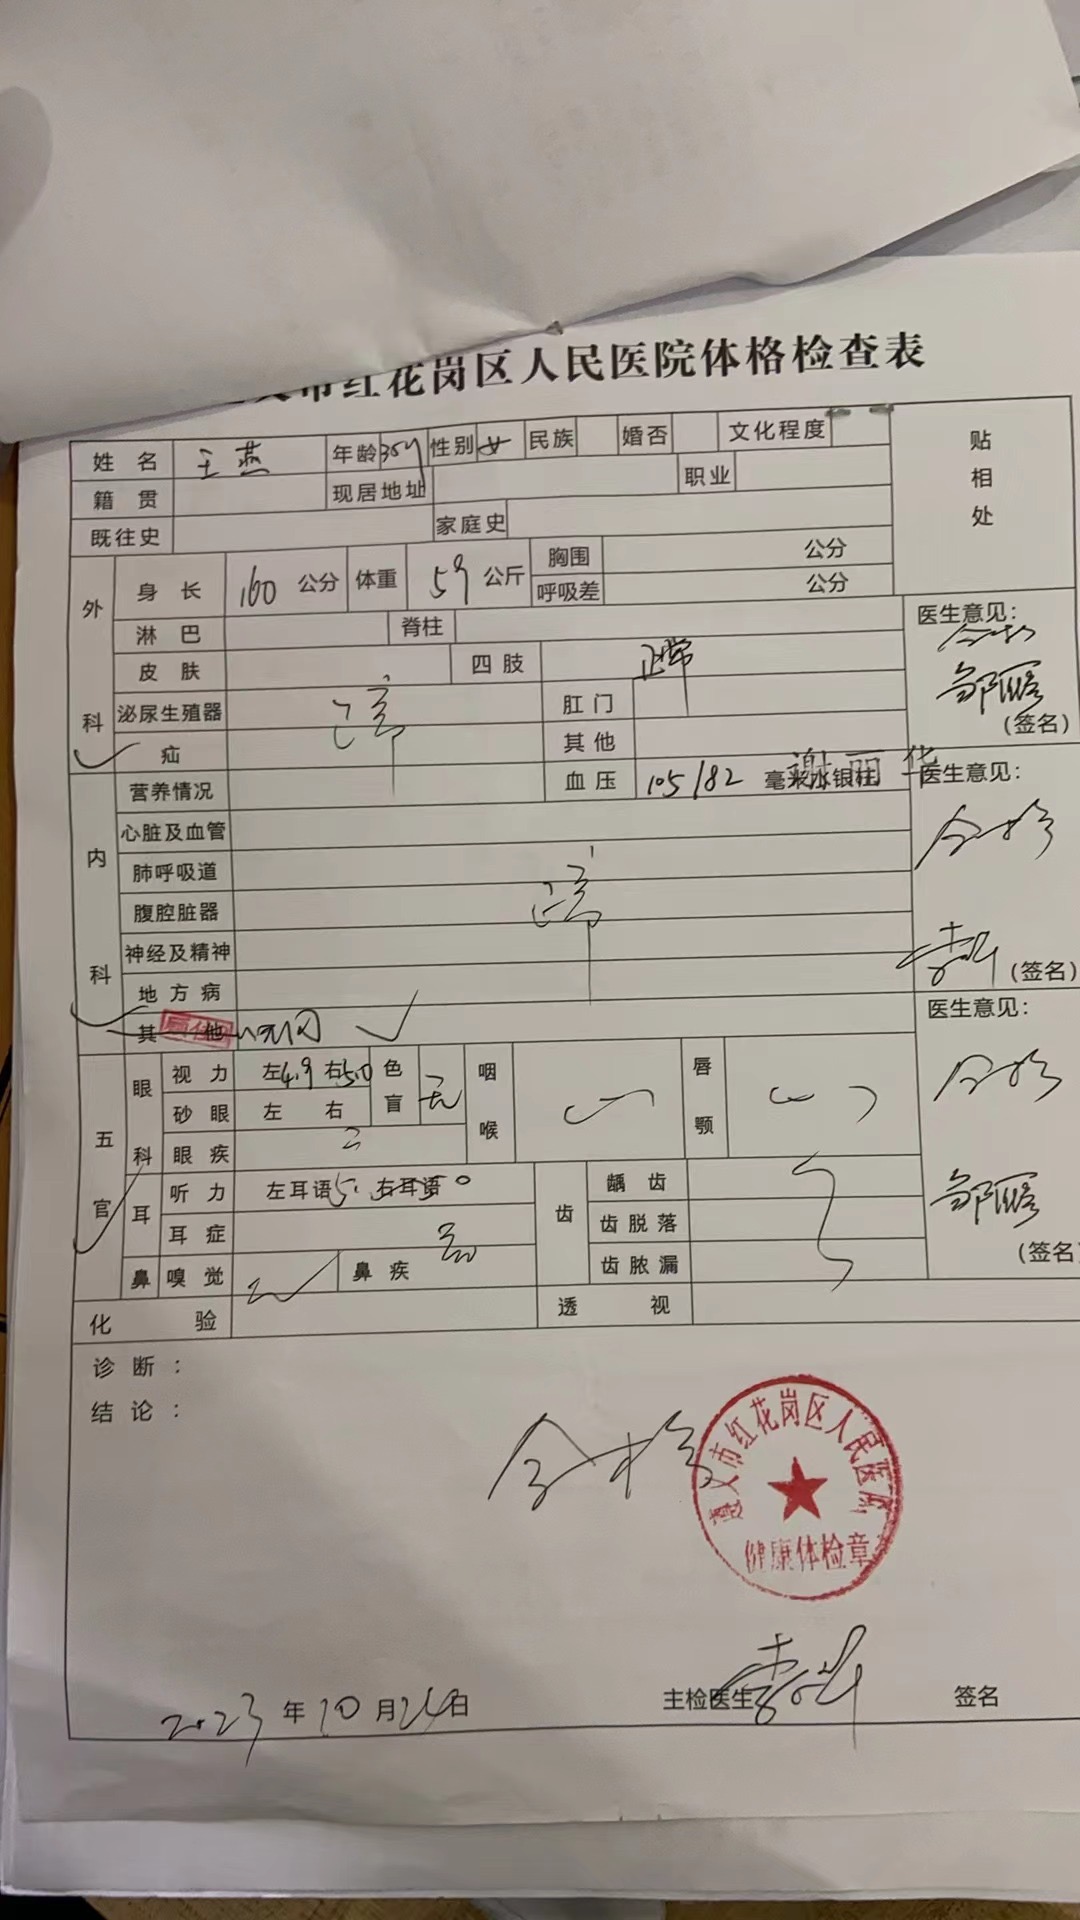 市红花岗区人民医院体格检查表
姓 名 王燕 年龄 35岁 性别 女 民族 婚否 文化程度
贴相处
籍 贯 现居地址 职业
既往史 家庭史
外科
身 长 160 公分 体重 59 公斤 胸围 公分
呼吸差 公分
淋 巴 脊柱
医生意见： 合格
皮 肤 四肢 正常
泌尿生殖器 肛门
(签名)
疝 其他
内科
营养情况 血压 105/82 毫米水银柱 谢丽华
医生意见： 合格
心脏及血管
肺呼吸道
腹腔脏器
神经及精神
地方病
(签名)
其 他
医生意见： 合格
五官
眼科 视力 左4.9 右5.0 色盲 无 咽喉 唇颚
砂眼 左 右
眼疾
耳 听力 左耳语5. 右耳语5 齿 龋齿
耳症 齿脱落
鼻 嗅觉 鼻疾 齿脓漏
(签名)
化 验 透 视
诊断：
结论：
合格
遵义市红花岗区人民医院
健康体检章
主检医生 签名
2023 年 10 月 26 日